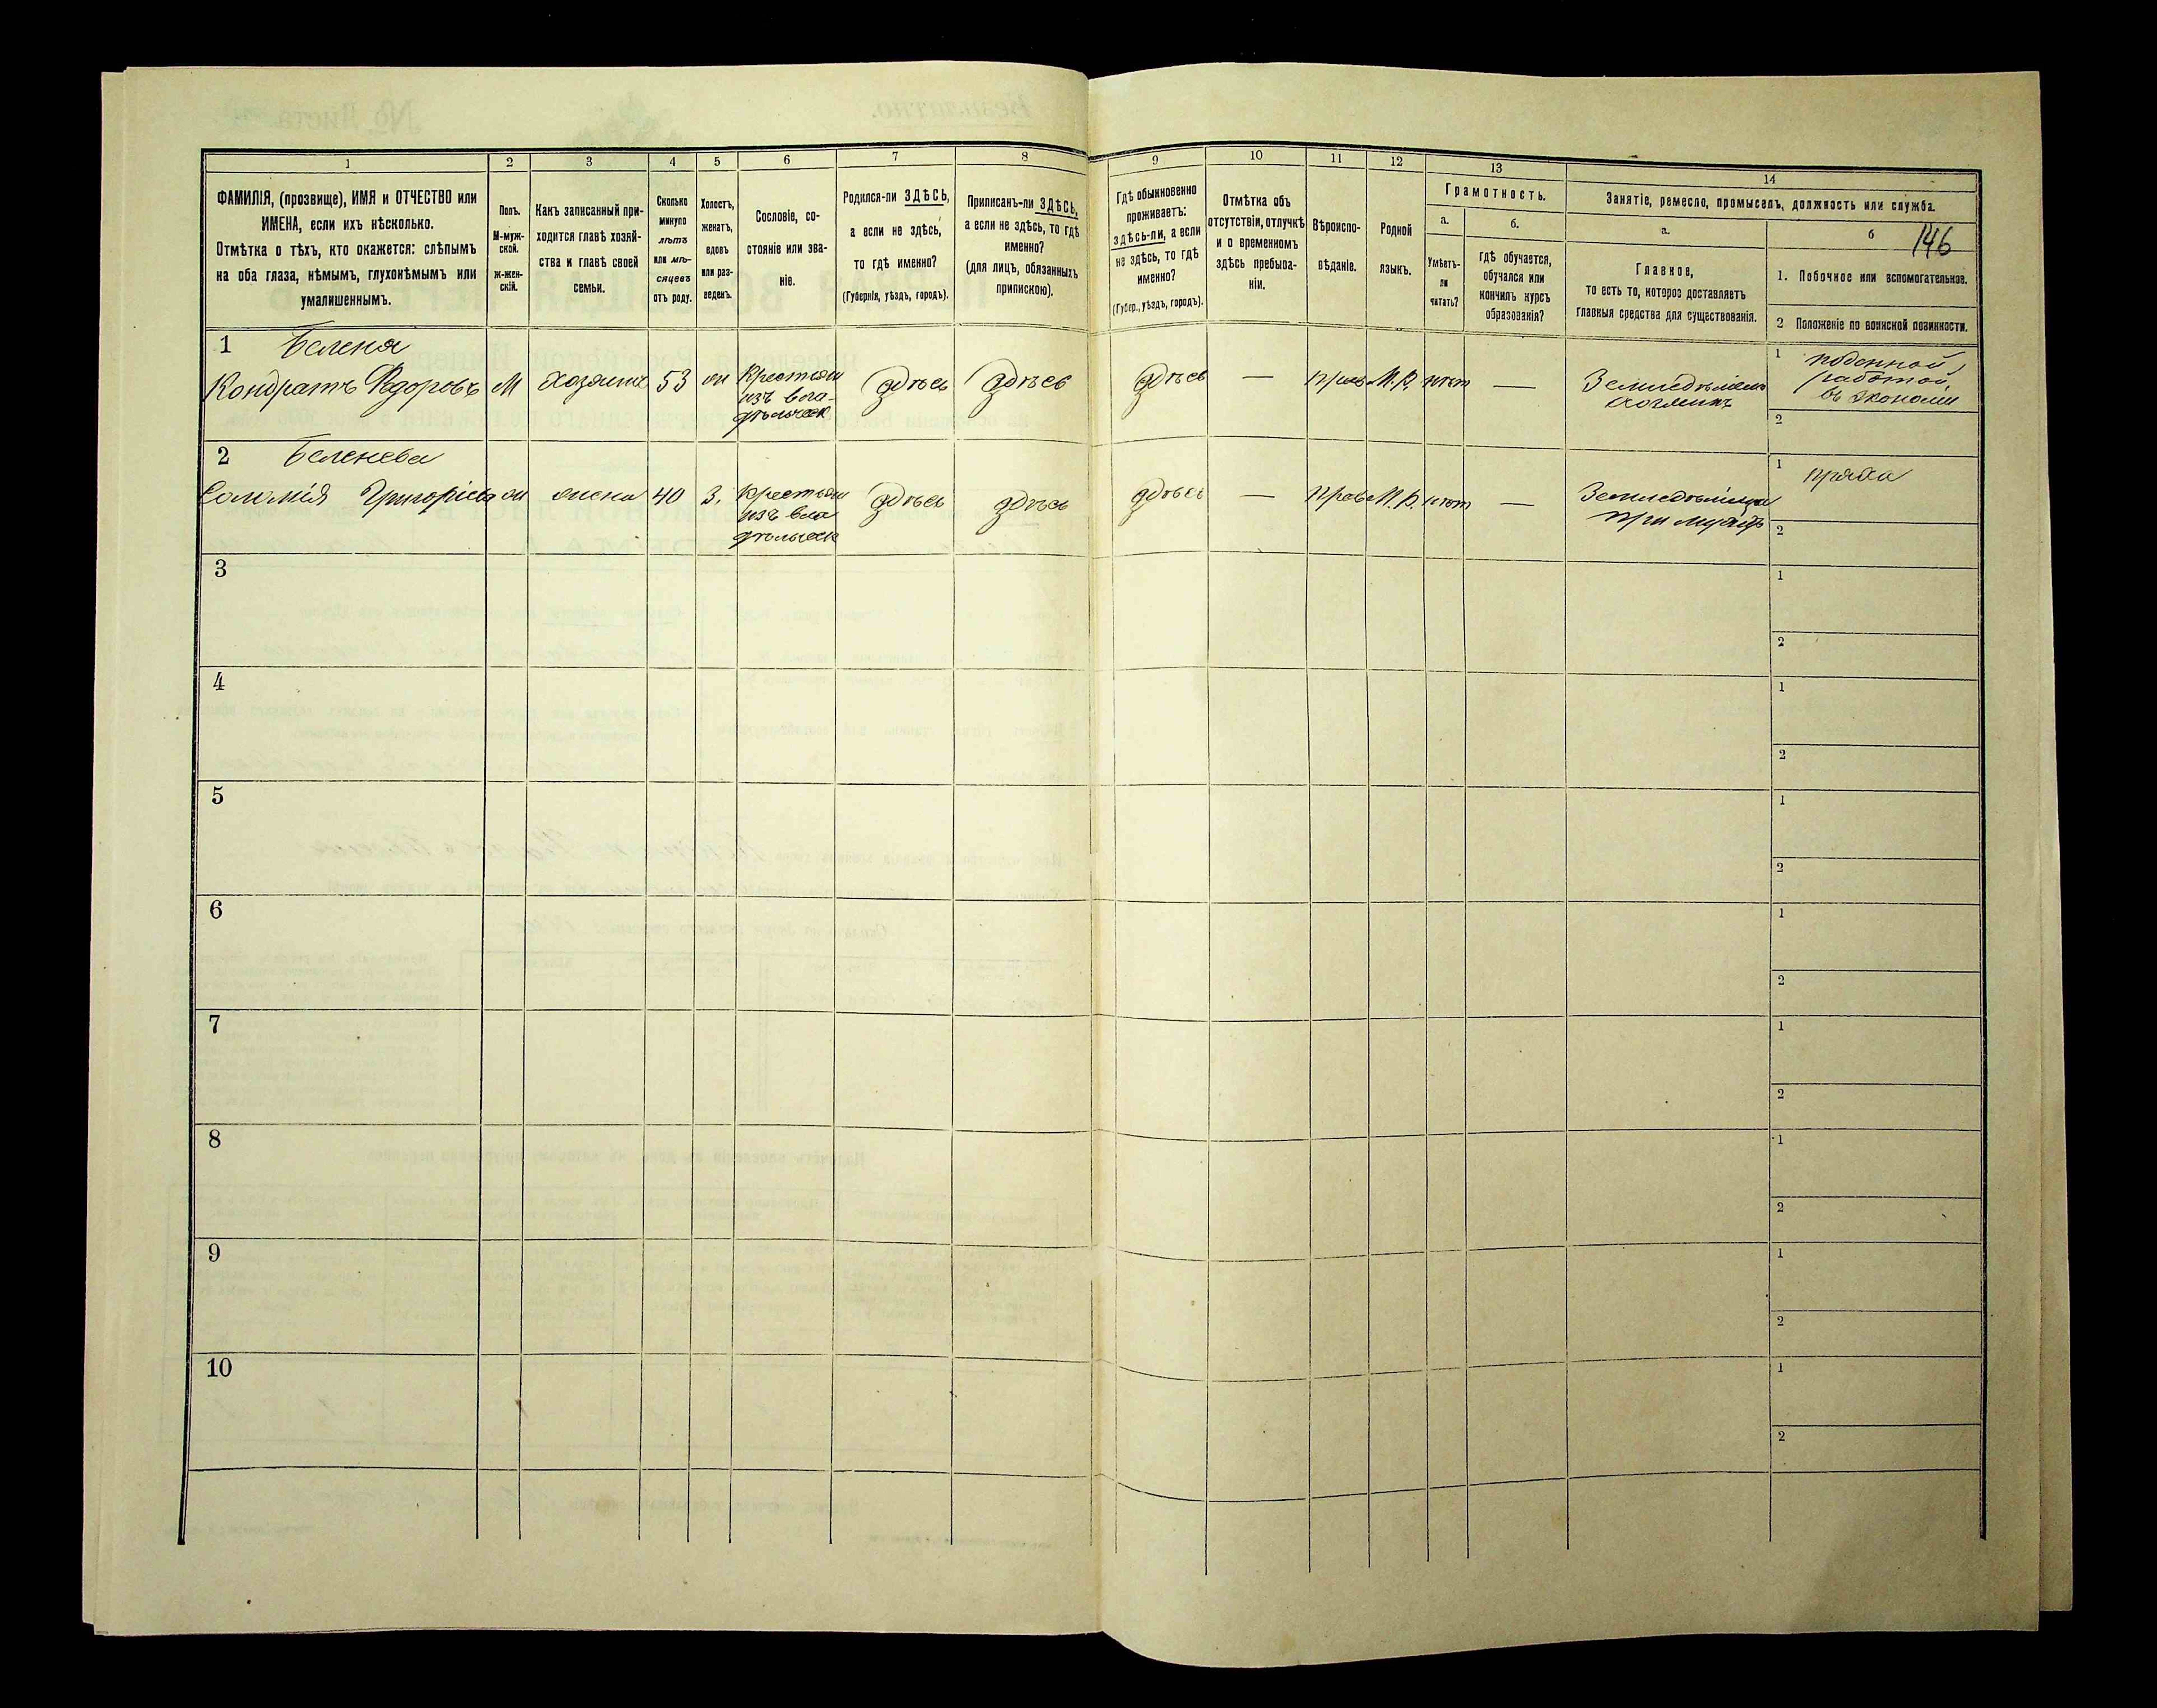 1 2 3 4 5 6 7 8 9 10 11 12 13 14
ФАМИЛІЯ, (прозвище), ИМЯ и ОТЧЕСТВО или
ИМЕНА, если ихъ нѣсколько.
Отмѣтка о тѣхъ, кто окажется: слѣпымъ
на оба глаза, нѣмымъ, глухонѣмымъ или
умалишеннымъ.
Полъ.
М-муж-
ской.
ж-жен-
скій.
Какъ записанный при-
ходится главѣ хозяй-
ства и главѣ своей
семьи.
Сколько
минуло
лѣтъ
или мѣ-
сяцевъ
отъ роду.
Холостъ,
женатъ,
вдовъ
или раз-
веденъ.
Сословіе, со-
стояніе или зва-
ніе.
Родился-ли ЗДѢСЬ,
а если не здѣсь,
то гдѣ именно?
(Губернія, уѣздъ, городъ).
Приписанъ-ли ЗДѢСЬ,
а если не здѣсь, то гдѣ
именно?
(для лицъ, обязанныхъ
припискою).
Гдѣ обыкновенно
проживаетъ:
здѣсь-ли, а если
не здѣсь, то гдѣ
именно?
(Губер., уѣздъ, городъ).
Отмѣтка объ
отсутствіи, отлучкѣ
и о временномъ
здѣсь пребыва-
ніи.
Вѣроиспо-
вѣданіе.
Родной
языкъ.
Грамотность.
а.
Умѣетъ-
ли
читать?
б.
гдѣ обучается,
обучался или
кончилъ курсъ
образованія?
Занятіе, ремесло, промыселъ, должность или служба.
а.
Главное,
то есть то, которое доставляетъ
главныя средства для существованія.
б
146
1. Побочное или вспомогательное.
2 Положеніе по воинской повинности.
1 Белена
Кондратъ Федоровъ М хозяинъ 53 жн Крестьян
изъ вла-
дѣльческ
здѣсь здѣсь здѣсь — прав М.Р. нѣтъ —
Земледѣлецъ
хозяинъ
1 поденной
работой,
въ экономіи
2
2 Беленева
Соломія Григорьева жн жена 40 З. Крестьян
изъ вла
дѣльческ
здѣсь здѣсь здѣсь — прав М.Р. нѣтъ —
Земледѣлица
при мужѣ
1 пряха
2
3 1
2
4 1
2
5 1
2
6 1
2
7 1
2
8 1
2
9 1
2
10 1
2